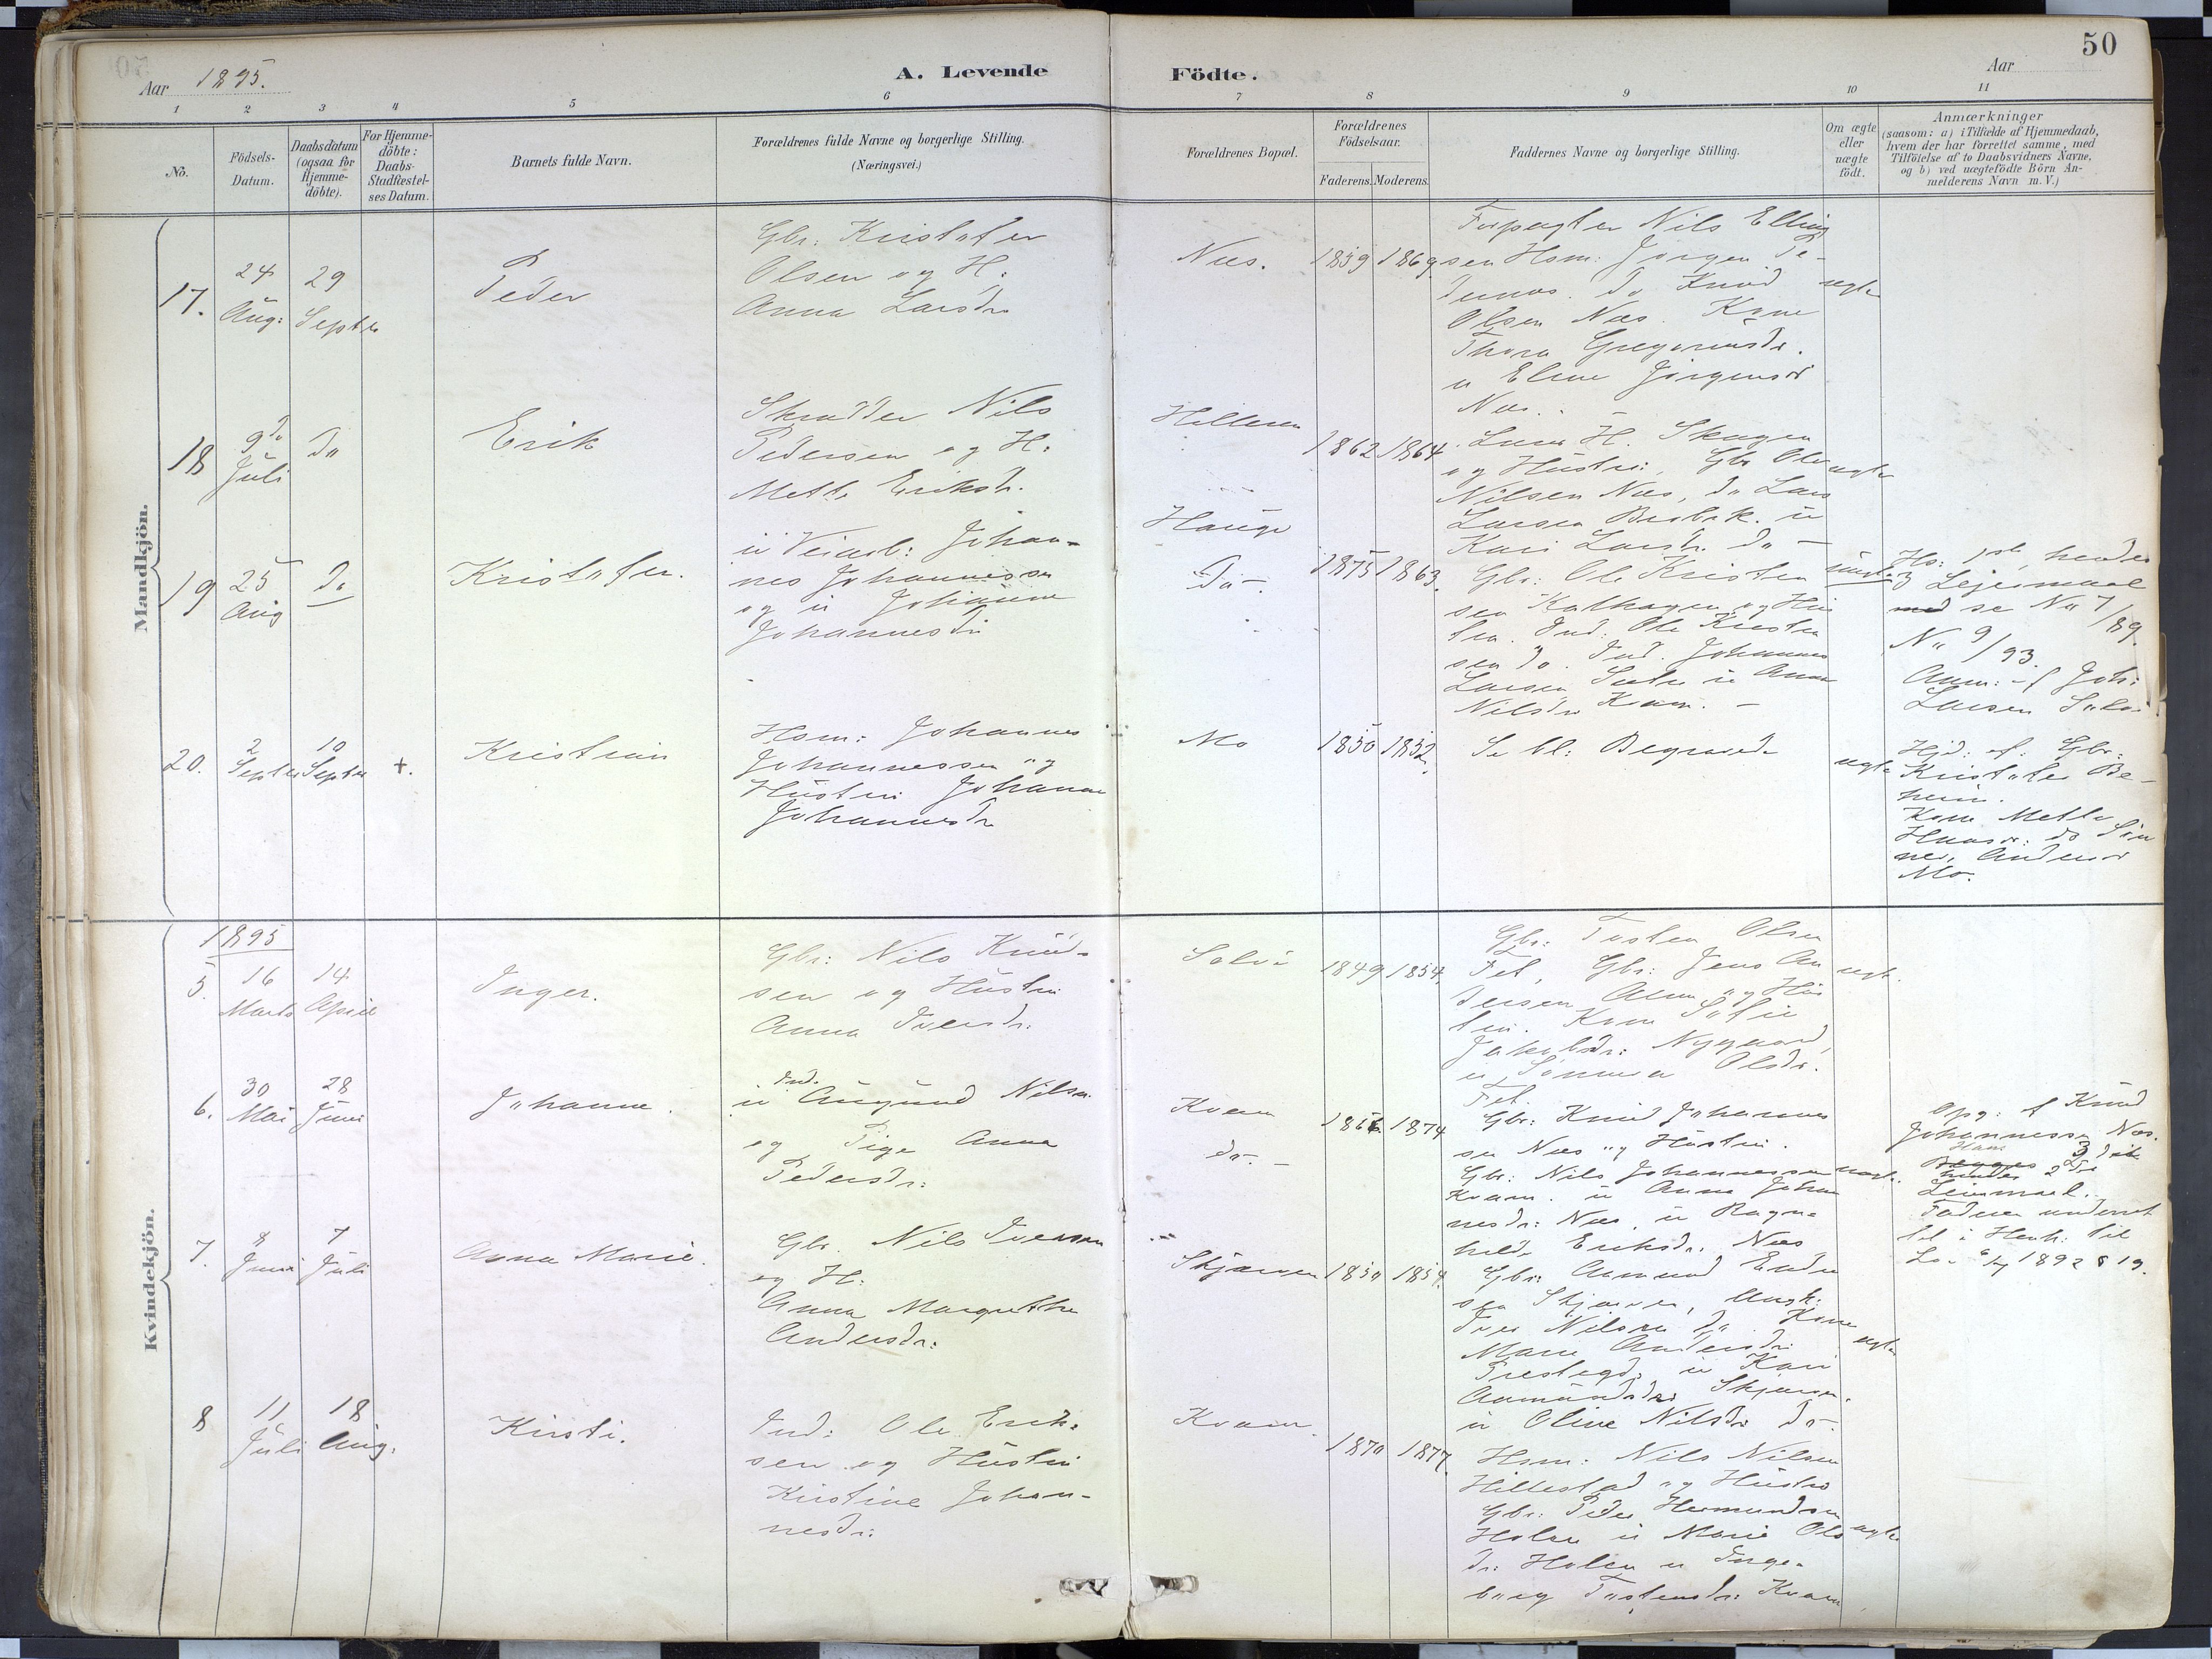 50
Aar 1895.
A. Levende Födte.
Aar
1 2 3 4 5 6 7 8 9 10 11
No.
Födsels-
Datum.
Daabsdatum
(ogsaa for
Hjemme-
döbte).
For Hjemme-
döbte:
Daabs-
Stadfæstel-
ses Datum.
Barnets fulde Navn.
Forældrenes fulde Navne og borgerlige Stilling.
(Næringsvei.)
Forældrenes Bopæl.
Forældrenes
Födselsaar.
Faderens. Moderens.
Faddernes Navne og borgerlige Stilling.
Om ægte
eller
uægte
födt.
Anmærkninger
(saasom: a) i Tilfælde af Hjemmedaab,
hvem der har forrettet samme, med
Tilföielse af to Daabsvidners Navne,
og b) ved uægtefödte Börn An-
melderens Navn m.V.)
Mandkjön.
17.
24
Aug:
29
Septr
Peder
Gbr: Kristofer
Olsen og H:
Anna Larsdr
Næs.
1859 1869
Forpagter Nils Elling
sen Hsm: Jørgen Pe-
do Knud
Olsen Næs. Kone
Thora Gregoriusdr.
u Eline Jörgensdr
Næs.
ægte
18
9d
Juli
do
Erik
Skrædder Nils
Pedersen og H:
Mette Eriksdr.
Hillesen
1862 1864
H. Skagen
og Hustru, Gbr Ole
Nilsen Næs, do Lars
Larsen u
Kari Larsdr. do -
ægte
19
25
Aug
do
Kristofer.
u Veiarb: Johan-
nes Johannessen
og u Johanne
Johannesdr
Hauge
Do-.
1875 1863.
Gbr: Ole Kristen
sen Kalhagen og Hus
tru. Ind: Ole Kristen
sen do. Ind. Johannes
Larsen u Anna
Nilsdr Kvam. -
Hs: 1ste hendes
3 Leiermaal
se No 7/89.
No 9/93.
Anm: af Joh:
Larsen
20.
2
Septr
10
Septr
+.
Kristian
Hsm: Johannes
Johannessen og
Hustru Johanne
Johannesdr
Mo
1850 1852.
Se bl: Begravede
ægte
Hjd: af: Gbr:
Kristofer Be-
heim.
Kone Mette
Hansdr: do
Andersdr
Mo.
Kvindekjön.
1895
5.
16
Marts
14
April
Inger.
Gbr: Nils Knud-
sen og Hustru
Anna Iversdr.
1849 1854.
Gbr: Tosten Olsen
Fet, Gbr: Jens An
dersen og Hus
tru. Kone Sofie
Jakobsdr: Nygaard,
u Olsdr.
Fet.
ægt.
6.
30
Mai
28
Juni
Johanne.
Ind.
u Augund Nilsen
og Pige Anna
Pedersdr:
Kvam
do. -
1874
Gbr: Knud Johannes
sen Næs og Hustru.
Gbr: Nils Johannessen
Kvam. u Anna Johan
nesdr: Næs, u Ragn-
hilde Eriksdr. Næs
uægt.
Opg: af Knud
Johannessen Næs.
Hans
hendes
Leiermaal.
Faderen underret
tet i Henh: til
Lov 6/7 1892 § 19.
7.
8
Juni
7
Juli
Anna Marie.
Gbr. Nils Iversen
og H:
Anna Margrethe
Andersdr:
Skjærven
1850 1854.
Gbr: Aamund Endre
sen Skjærven, Ungk:
Iver Nilsen do Kone
Marie Andersdr:
Prestegd; u Kari
Aamundsdr: Skjærv.
u Oline Nilsdr do-.
ægte
8
11
Juli
18
Aug.
Kirsti.
Ind: Ole Erik-
sen og Hustru
Kristine Johan-
nesdr:
Kvam.
1870 1877.
Hsm: Nils Nilsen
Hillestad og Hustru
Gbr: Peder Hermundsen
Holen u Marie Ols
dr: Holen u Inge-
borg Tostensdr: Kvam
ægte